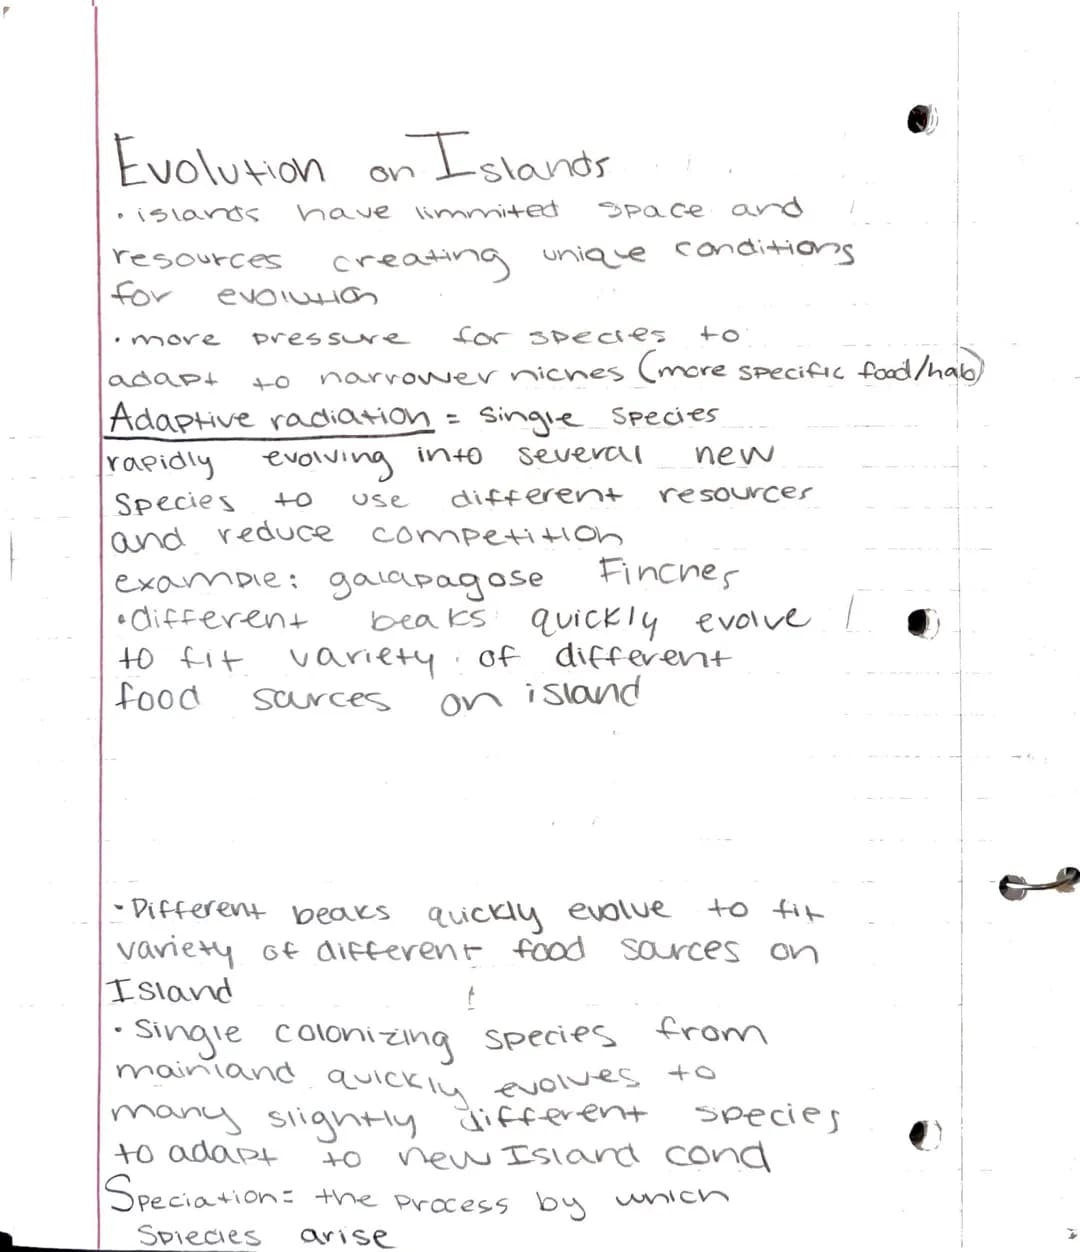 Evolution on Islands
• islands have limmited space and
resources creating unique conditions
for evolution
• more pressure for species to
adapt to narrower niches (more specific food/hab)
Adaptive radiation = single species
rapidly evolving into several new
species to use different resources
and reduce competition
example: galapagose Finches
• different beaks quickly evolve
to fit variety of different
food sources on island
• Different beaks quickly evolve to fit
variety of different food sources on
Island
• Single colonizing species from
mainland quickly evolves to
many slightly different species
to adapt to new Island cond
Speciation = the process by which
Spiecies arise